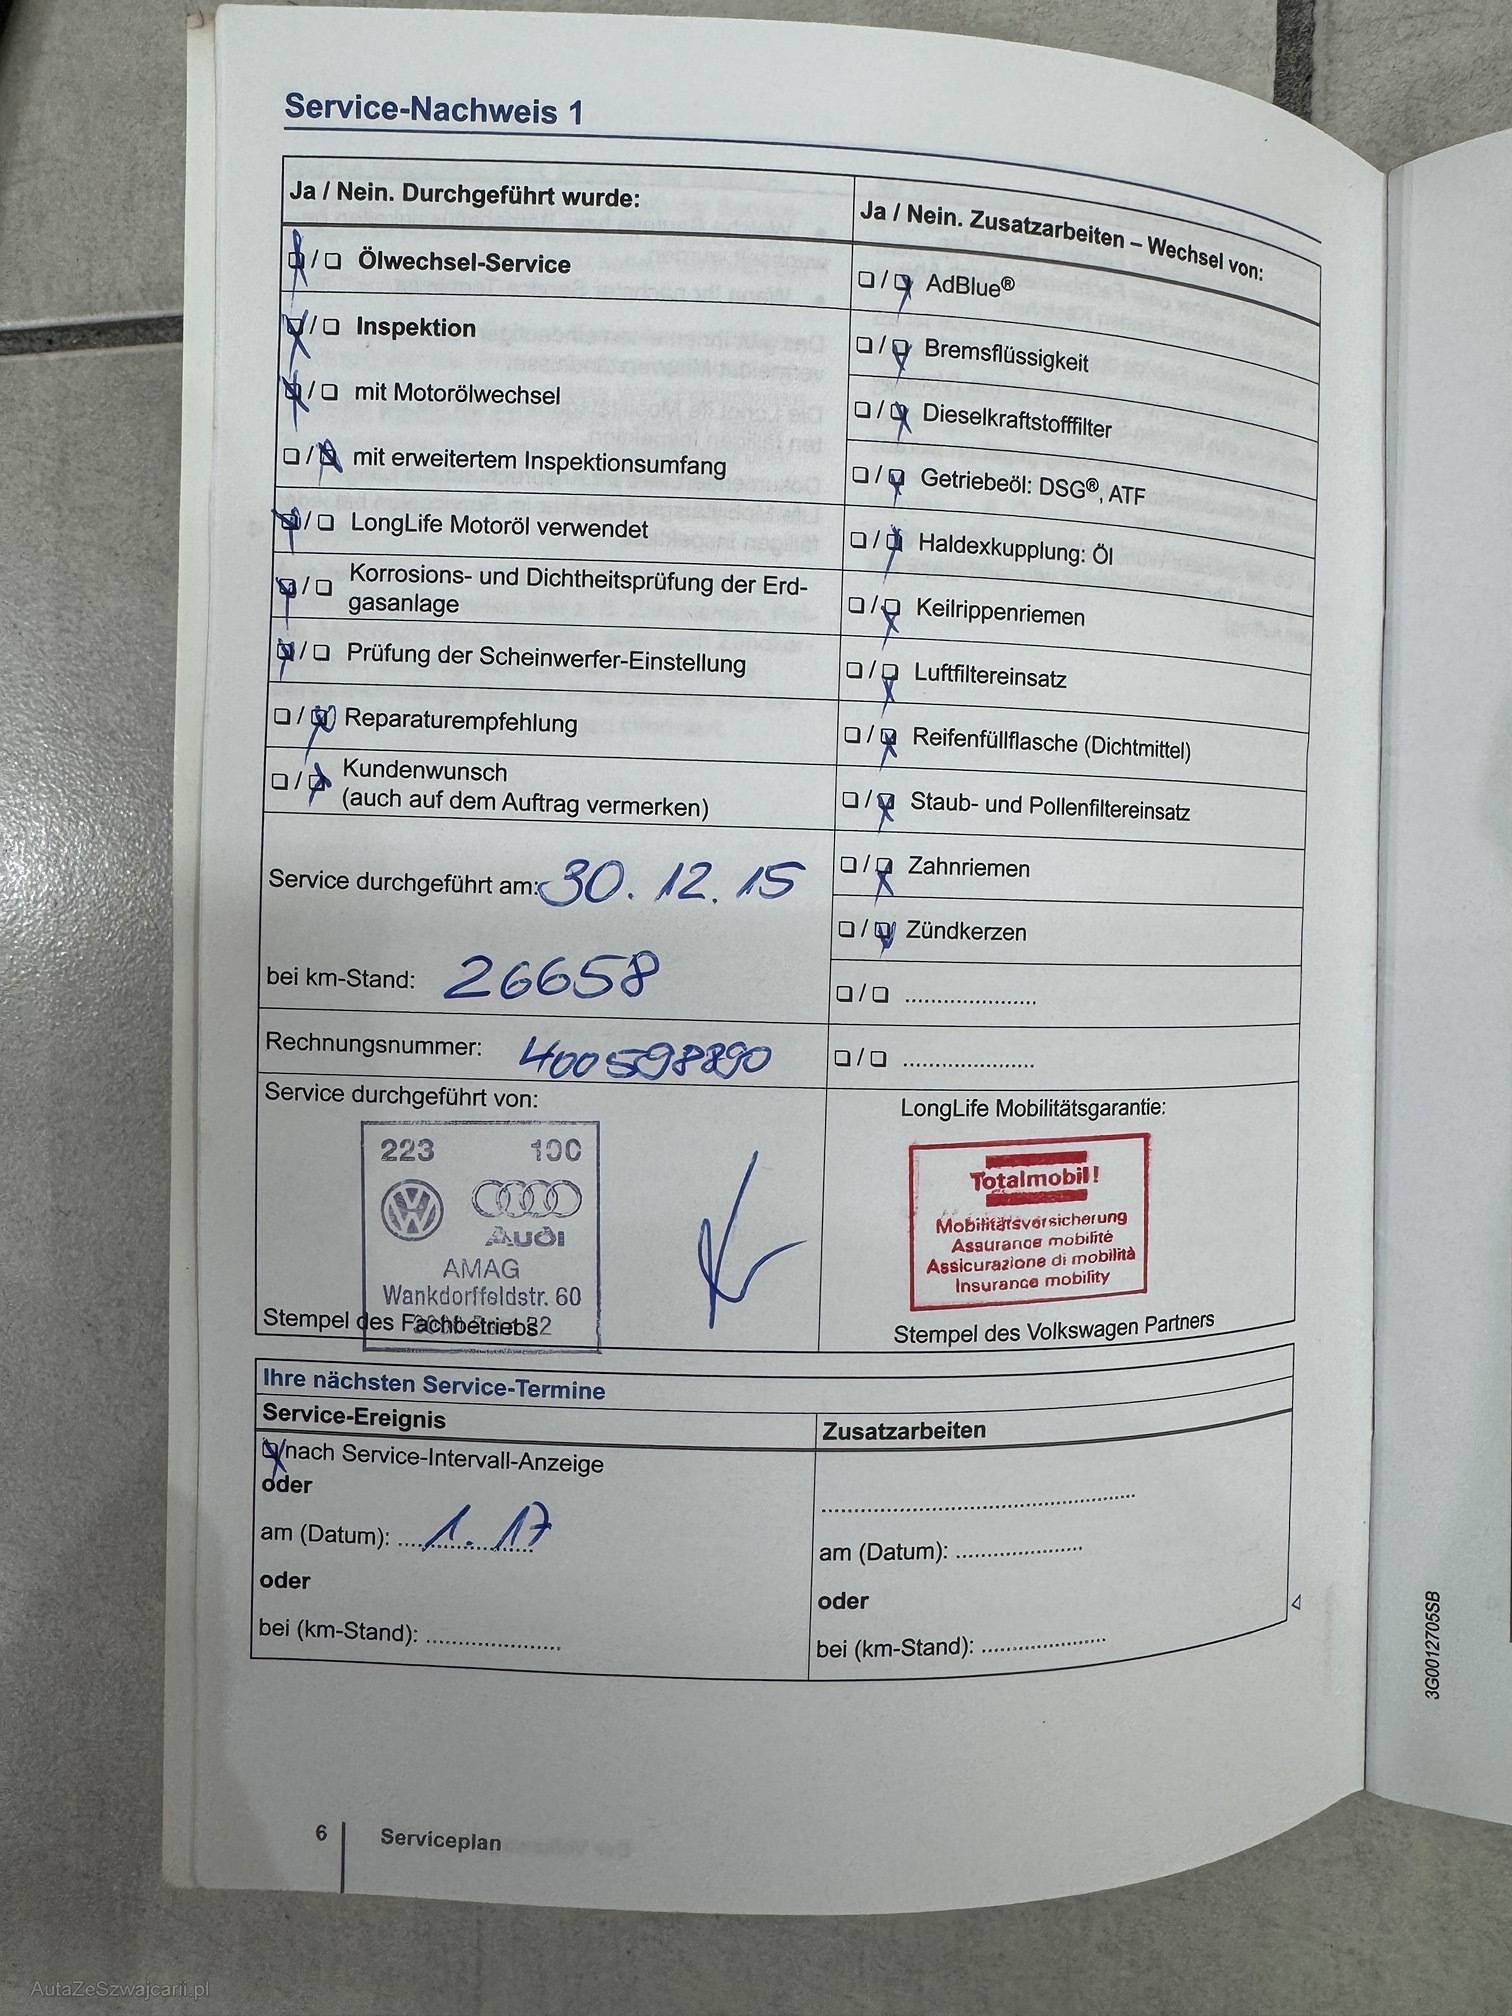 Service-Nachweis 1
Ja / Nein. Durchgeführt wurde:
Ölwechsel-Service
Inspektion
mit Motorölwechsel
mit erweitertem Inspektionsumfang
LongLife Motoröl verwendet
Korrosions- und Dichtheitsprüfung der Erd-
gasanlage
Prüfung der Scheinwerfer-Einstellung
Reparaturempfehlung
Kundenwunsch
(auch auf dem Auftrag vermerken)
Service durchgeführt am: 30.12.15
bei km-Stand: 26658
Rechnungsnummer: 400598890
Service durchgeführt von:
223 100
Audi
AMAG
Wankdorffeldstr. 60
Stempel des Fachbetriebs
Ja / Nein. Zusatzarbeiten – Wechsel von:
AdBlue®
Bremsflüssigkeit
Dieselkraftstofffilter
Getriebeöl: DSG®, ATF
Haldexkupplung: Öl
Keilrippenriemen
Luftfiltereinsatz
Reifenfüllflasche (Dichtmittel)
Staub- und Pollenfiltereinsatz
Zahnriemen
Zündkerzen
LongLife Mobilitätsgarantie:
Totalmobil!
Mobilitätsversicherung
Assurance mobilité
Assicurazione di mobilità
Insurance mobility
Stempel des Volkswagen Partners
Ihre nächsten Service-Termine
Service-Ereignis
nach Service-Intervall-Anzeige
oder
am (Datum): 1.17
oder
bei (km-Stand):
Zusatzarbeiten
am (Datum):
oder
bei (km-Stand):
3G0012705SB
6 Serviceplan
AutaZeSzwajcarii.pl